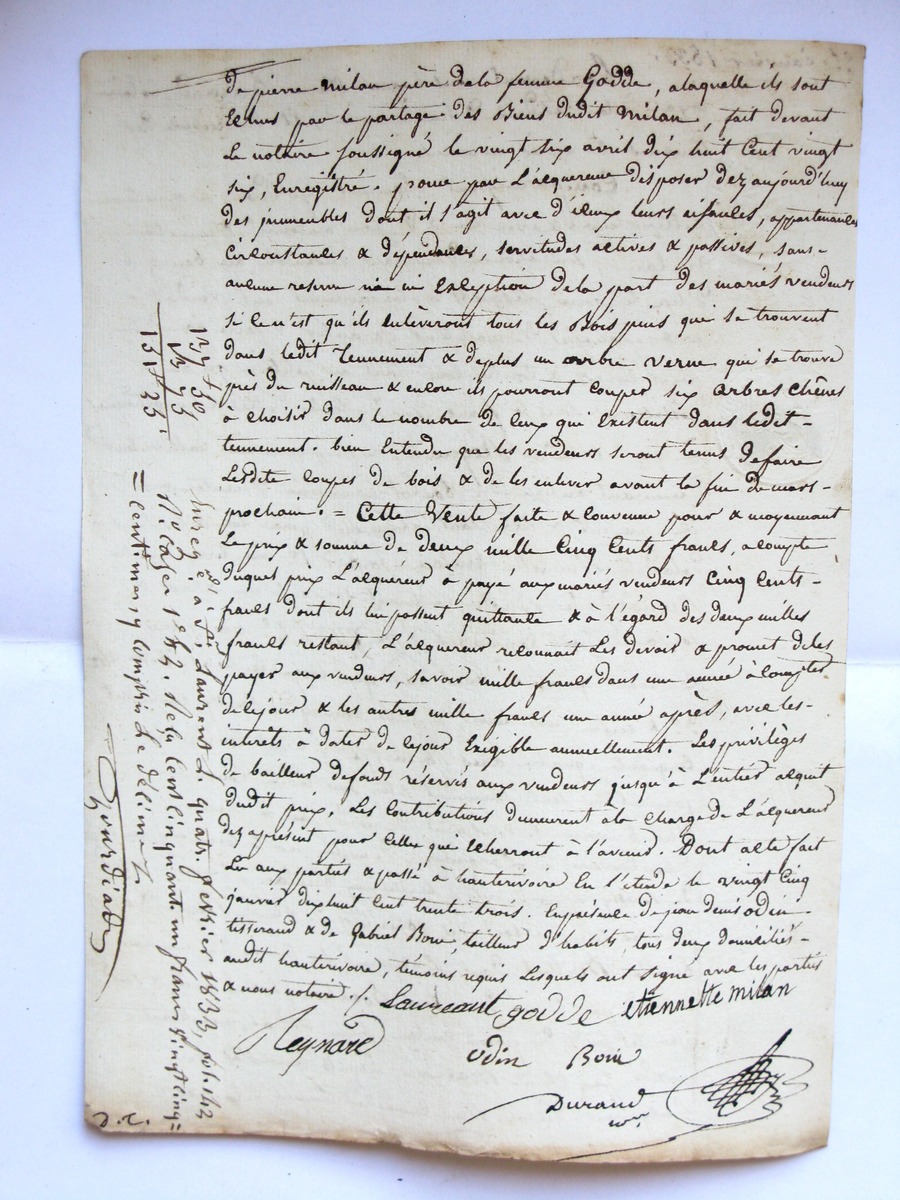 de pierre milan père de la femme Godde, a laquelle ils sont
échus par le partage des Biens dudit milan, fait devant
Le notaire soussigné le vingt six avril dix huit Cent vingt
six, Enregistré. pour par L'acquereur disposer dez aujourd'huy
des immeubles dont il s'agit avec d'iceux leurs aisances, appartenances
Circonstances & dépendances, servitudes actives & passives, sans-
aucune reserve ni Exception de la part des mariés vendeurs
si ce n'est qu'ils enlèveront tous les Bois pins qui se trouvent
dans ledit tennement & de plus un arbre verne qui se trouve
près du ruisseau & encore ils pourront couper six arbres chênes
à choisir dans le nombre de ceux qui Existent dans ledit-
tennement. bien Entendu que les vendeurs seront tenus de faire
Lesdite coupes de bois & de les enlever avant la fin de mars-
prochain. = Cette Vente faite & convenue pour & moyennant
Le prix & somme de deux mille Cinq Cents francs, a compte
duquel prix L'acquéreur à payé aux mariés vendeurs Cinq Cents-
francs dont ils lui passent quittance & à l'égard des deux milles
francs restant, L'acquereur reconnait Les devoir & promet de les
payer aux vendeurs, savoir mille francs dans une année à compter
de ce jour & les autres mille francs une année après, avec les-
interets à dater de ce jour Exigible annuellement. Les privilèges
de bailleur de fonds réservés aux vendeurs jusqu'à L'entier acquit
dudit prix. Les Contributions demeurent à la charge de L'acquereur
dez aprésent pour Celles qui Echerront à l'avenir. Dont acte fait
Lu aux parties & passé à hauterivoire En l'étude le vingt Cinq
janvier dix huit cent trente trois. En présence de jean denis odin
tisserand & de Gabriel Boni, tailleur d'habits, tous deux domiciliés-
audit hauterivoire, témoins requis Lesquels ont signé avec les parties
& nous notaire./.
Laureant godde etiennette milan
Reynard odin Boni
Durand
nre
137 50
13 75
151 25
Enreg. à St. Laurent L. quatr. fevrier 1833, fol. 142
Ro. Cases 1 & 2. Reçu Cent cinquant. un francs vingt cinq =
= Centimes, y compris Le décime.
d. r.